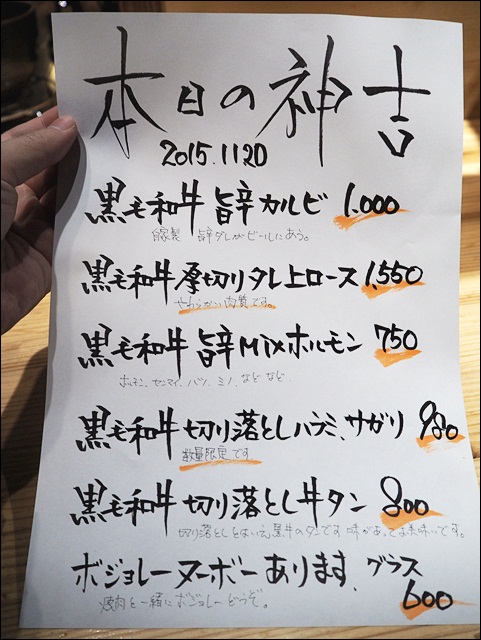 本日の神吉
2015.1120
黒毛和牛 旨辛カルビ 1.000
自家製 旨辛ダレがビールにあう。
黒毛和牛厚切りタレ上ロース 1,550
やわらかい肉質です。
黒毛和牛 旨辛Mixホルモン 750
ホルモン、センマイ、ハツ、ミノ、など など
黒毛和牛切り落としハラミ、サガリ 980
数量限定です
黒毛和牛 切り落とし牛タン 800
切り落としとはいえ黒牛のタンです 味があってま美味いです。
ボジョレーヌーボーあります、グラス
600
焼肉と一緒にボジョレーどうぞ。